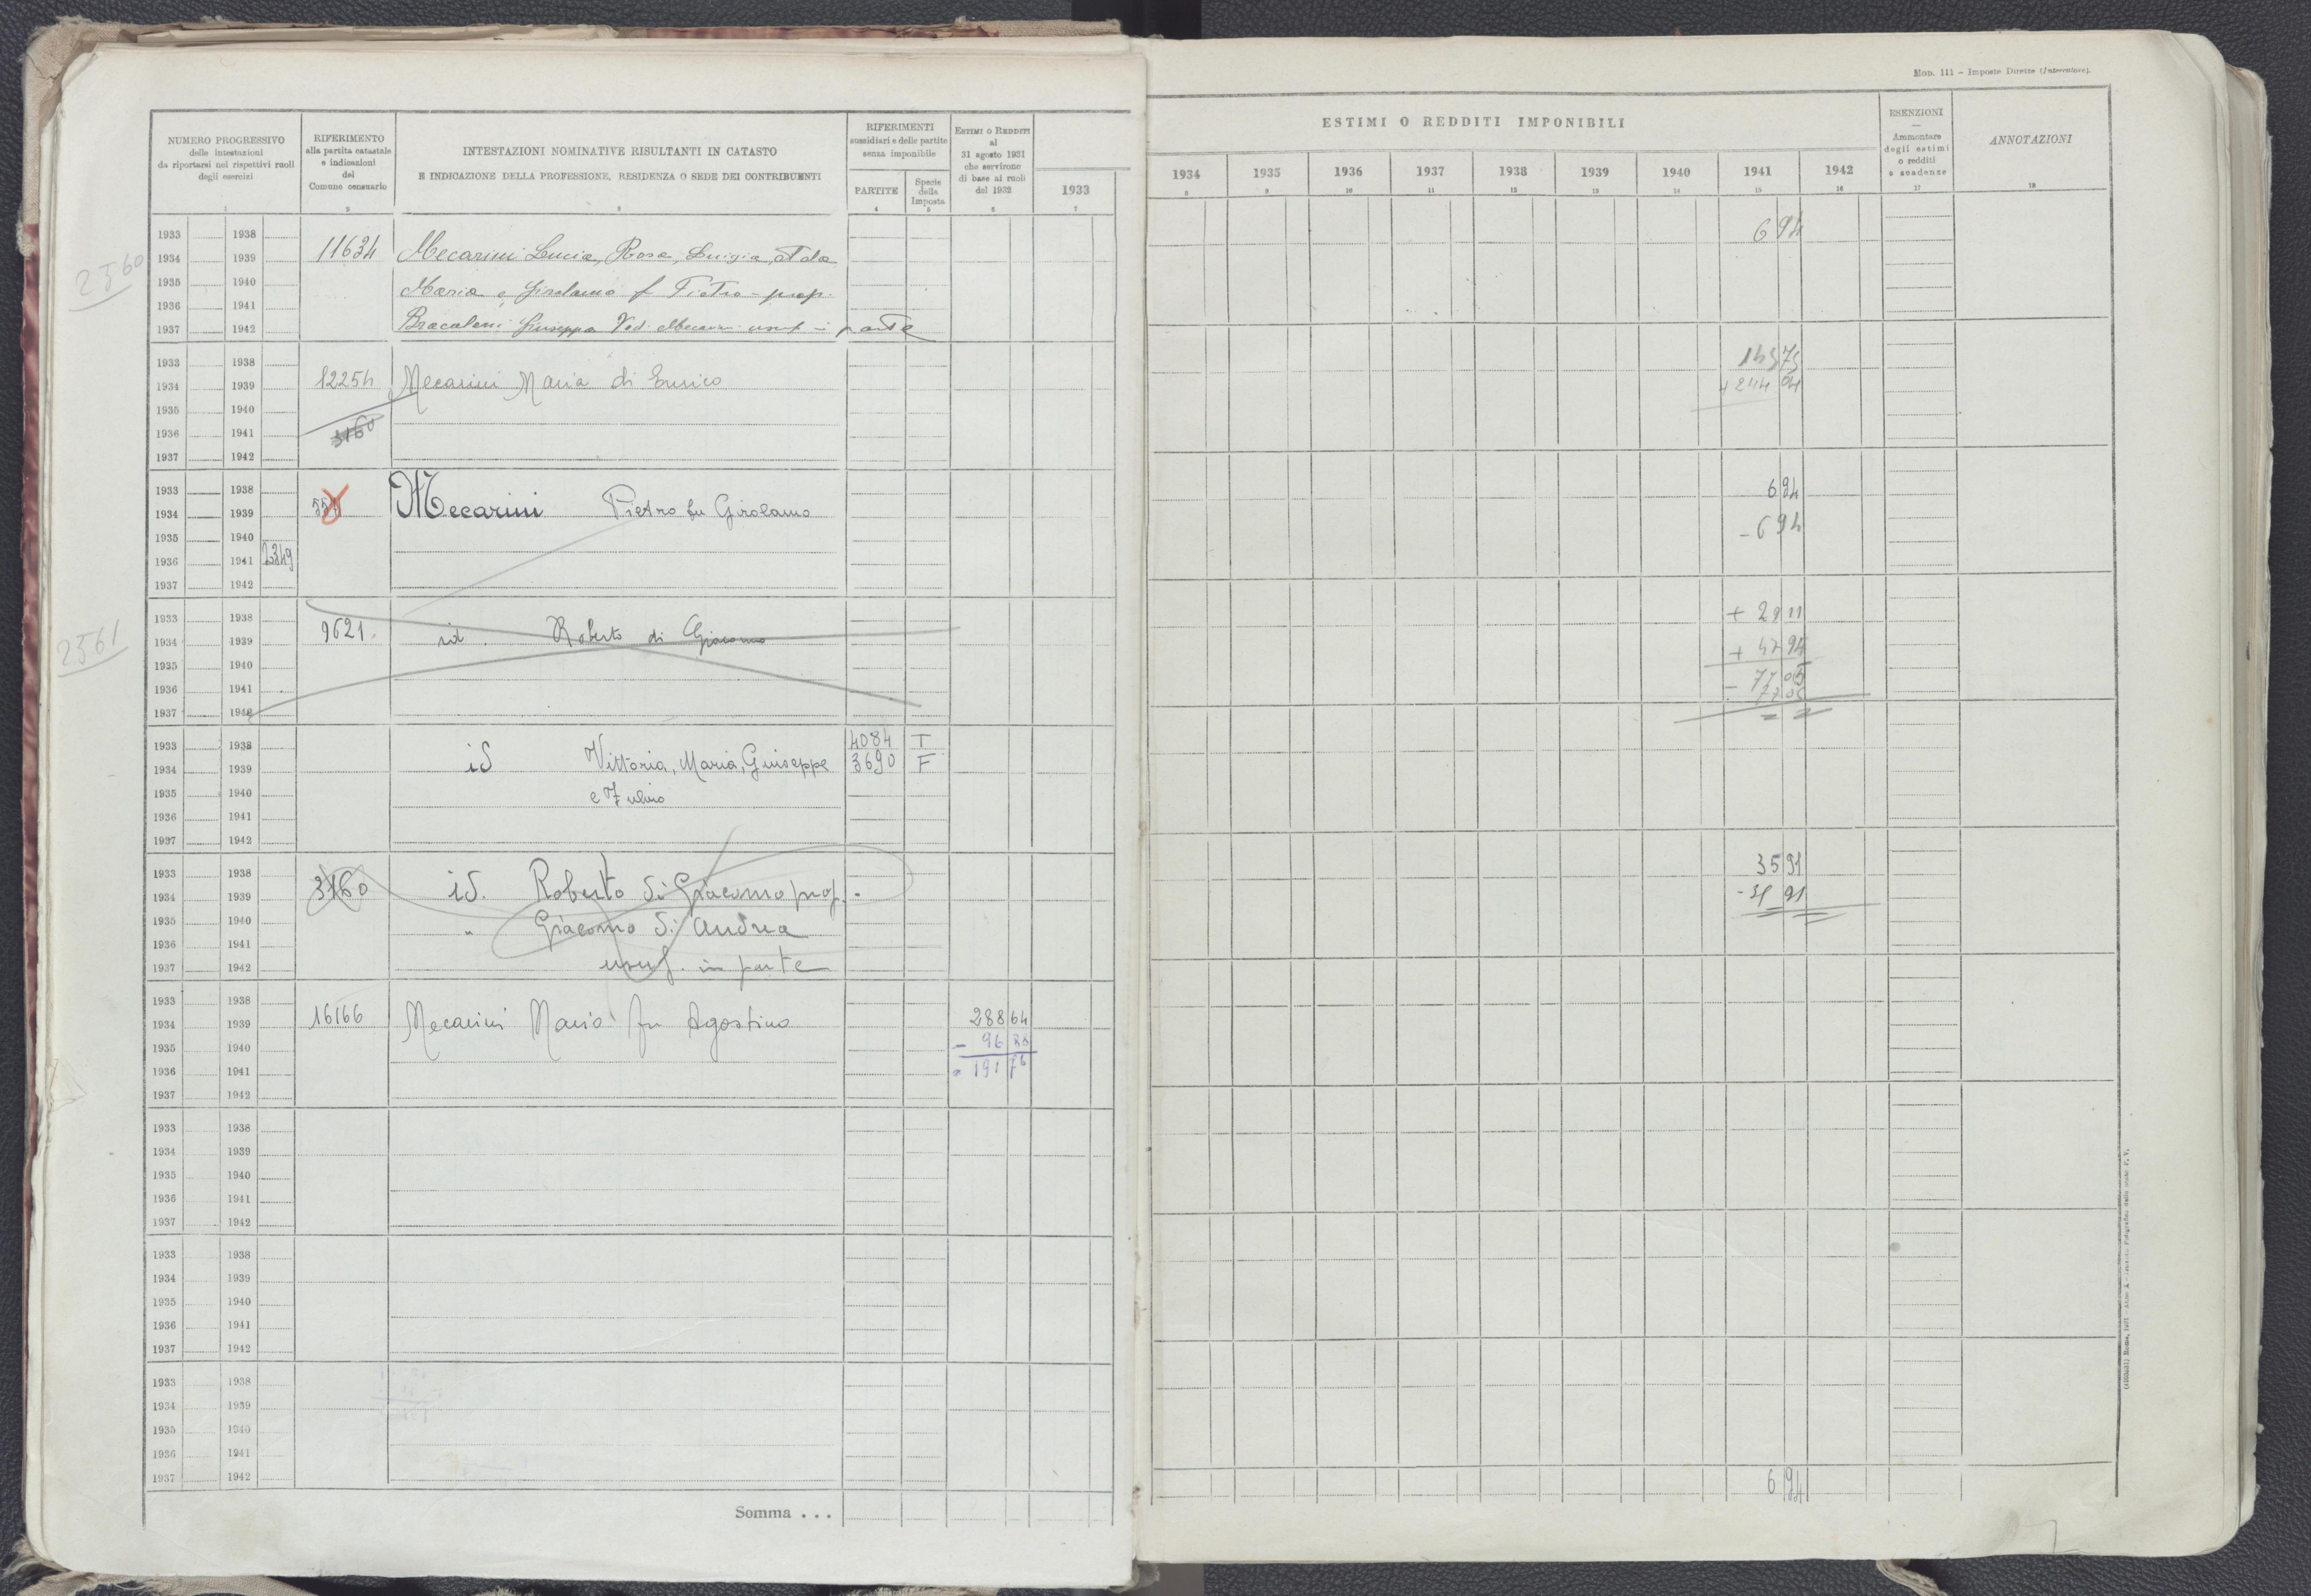 Mod. 111 - Imposte Dirette (Intercalare).
NUMERO PROGRESSIVO
delle intestazioni
da riportarsi nei rispettivi ruoli
degli esercizi
1
RIFERIMENTO
alla partita catastale
e indicazioni
del
Comune censuario
2
INTESTAZIONI NOMINATIVE RISULTANTI IN CATASTO
E INDICAZIONE DELLA PROFESSIONE, RESIDENZA O SEDE DEI CONTRIBUENTI
3
RIFERIMENTI
sussidiari e delle partite
senza imponibile
PARTITE
4
Specie
della
Imposta
5
ESTIMI O REDDITI
al
31 agosto 1931
che servirono
di base ai ruoli
del 1932
6
1933
7
ESTIMI O REDDITI IMPONIBILI
1934 1935 1936 1937 1938 1939 1940 1941 1942
8 9 10 11 12 13 14 15 16
ESENZIONI
Ammontare
degli estimi
o redditi
a scadenze
17
ANNOTAZIONI
18
2560
1933 1938
1934 1939
1935 1940
1936 1941
1937 1942
11634 Mecarini Lucia, Rosa, Luigia, Ada
Maria e Girolamo f Pietro - prop.
Bracaleni Giuseppa Ved. Mecarini usuf in parte
6 94
1933 1938
1934 1939
1935 1940
1936 1941
1937 1942
12254 Mecarini Maria di Enrico
3160
+ 244 04
1933 1938
1934 1939
1935 1940
1936 1941 2349
1937 1942
Mecarini Pietro fu Girolamo
6 94
- 6 94
2561
1933 1938
1934 1939
1935 1940
1936 1941
1937 1942
9621. id. Roberto di Giacomo
+ 29 11
+ 47 94
77 05
- 77 05
1933 1938
1934 1939
1935 1940
1936 1941
1937 1942
id Vittoria, Maria, Giuseppe
e Fulvio
4084 T
3690 F
1933 1938
1934 1939
1935 1940
1936 1941
1937 1942
3160 id. Roberto di Giacomo prop.
" Giacomo di Andrea
usuf. in parte
35 91
1933 1938
1934 1939
1935 1940
1936 1941
1937 1942
16166 Mecarini Maria fu Agostino
288 64
- 96 88
191 76
1933 1938
1934 1939
1935 1940
1936 1941
1937 1942
1933 1938
1934 1939
1935 1940
1936 1941
1937 1942
1933 1938
1934 1939
1935 1940
1936 1941
1937 1942
Somma . . .
6 94